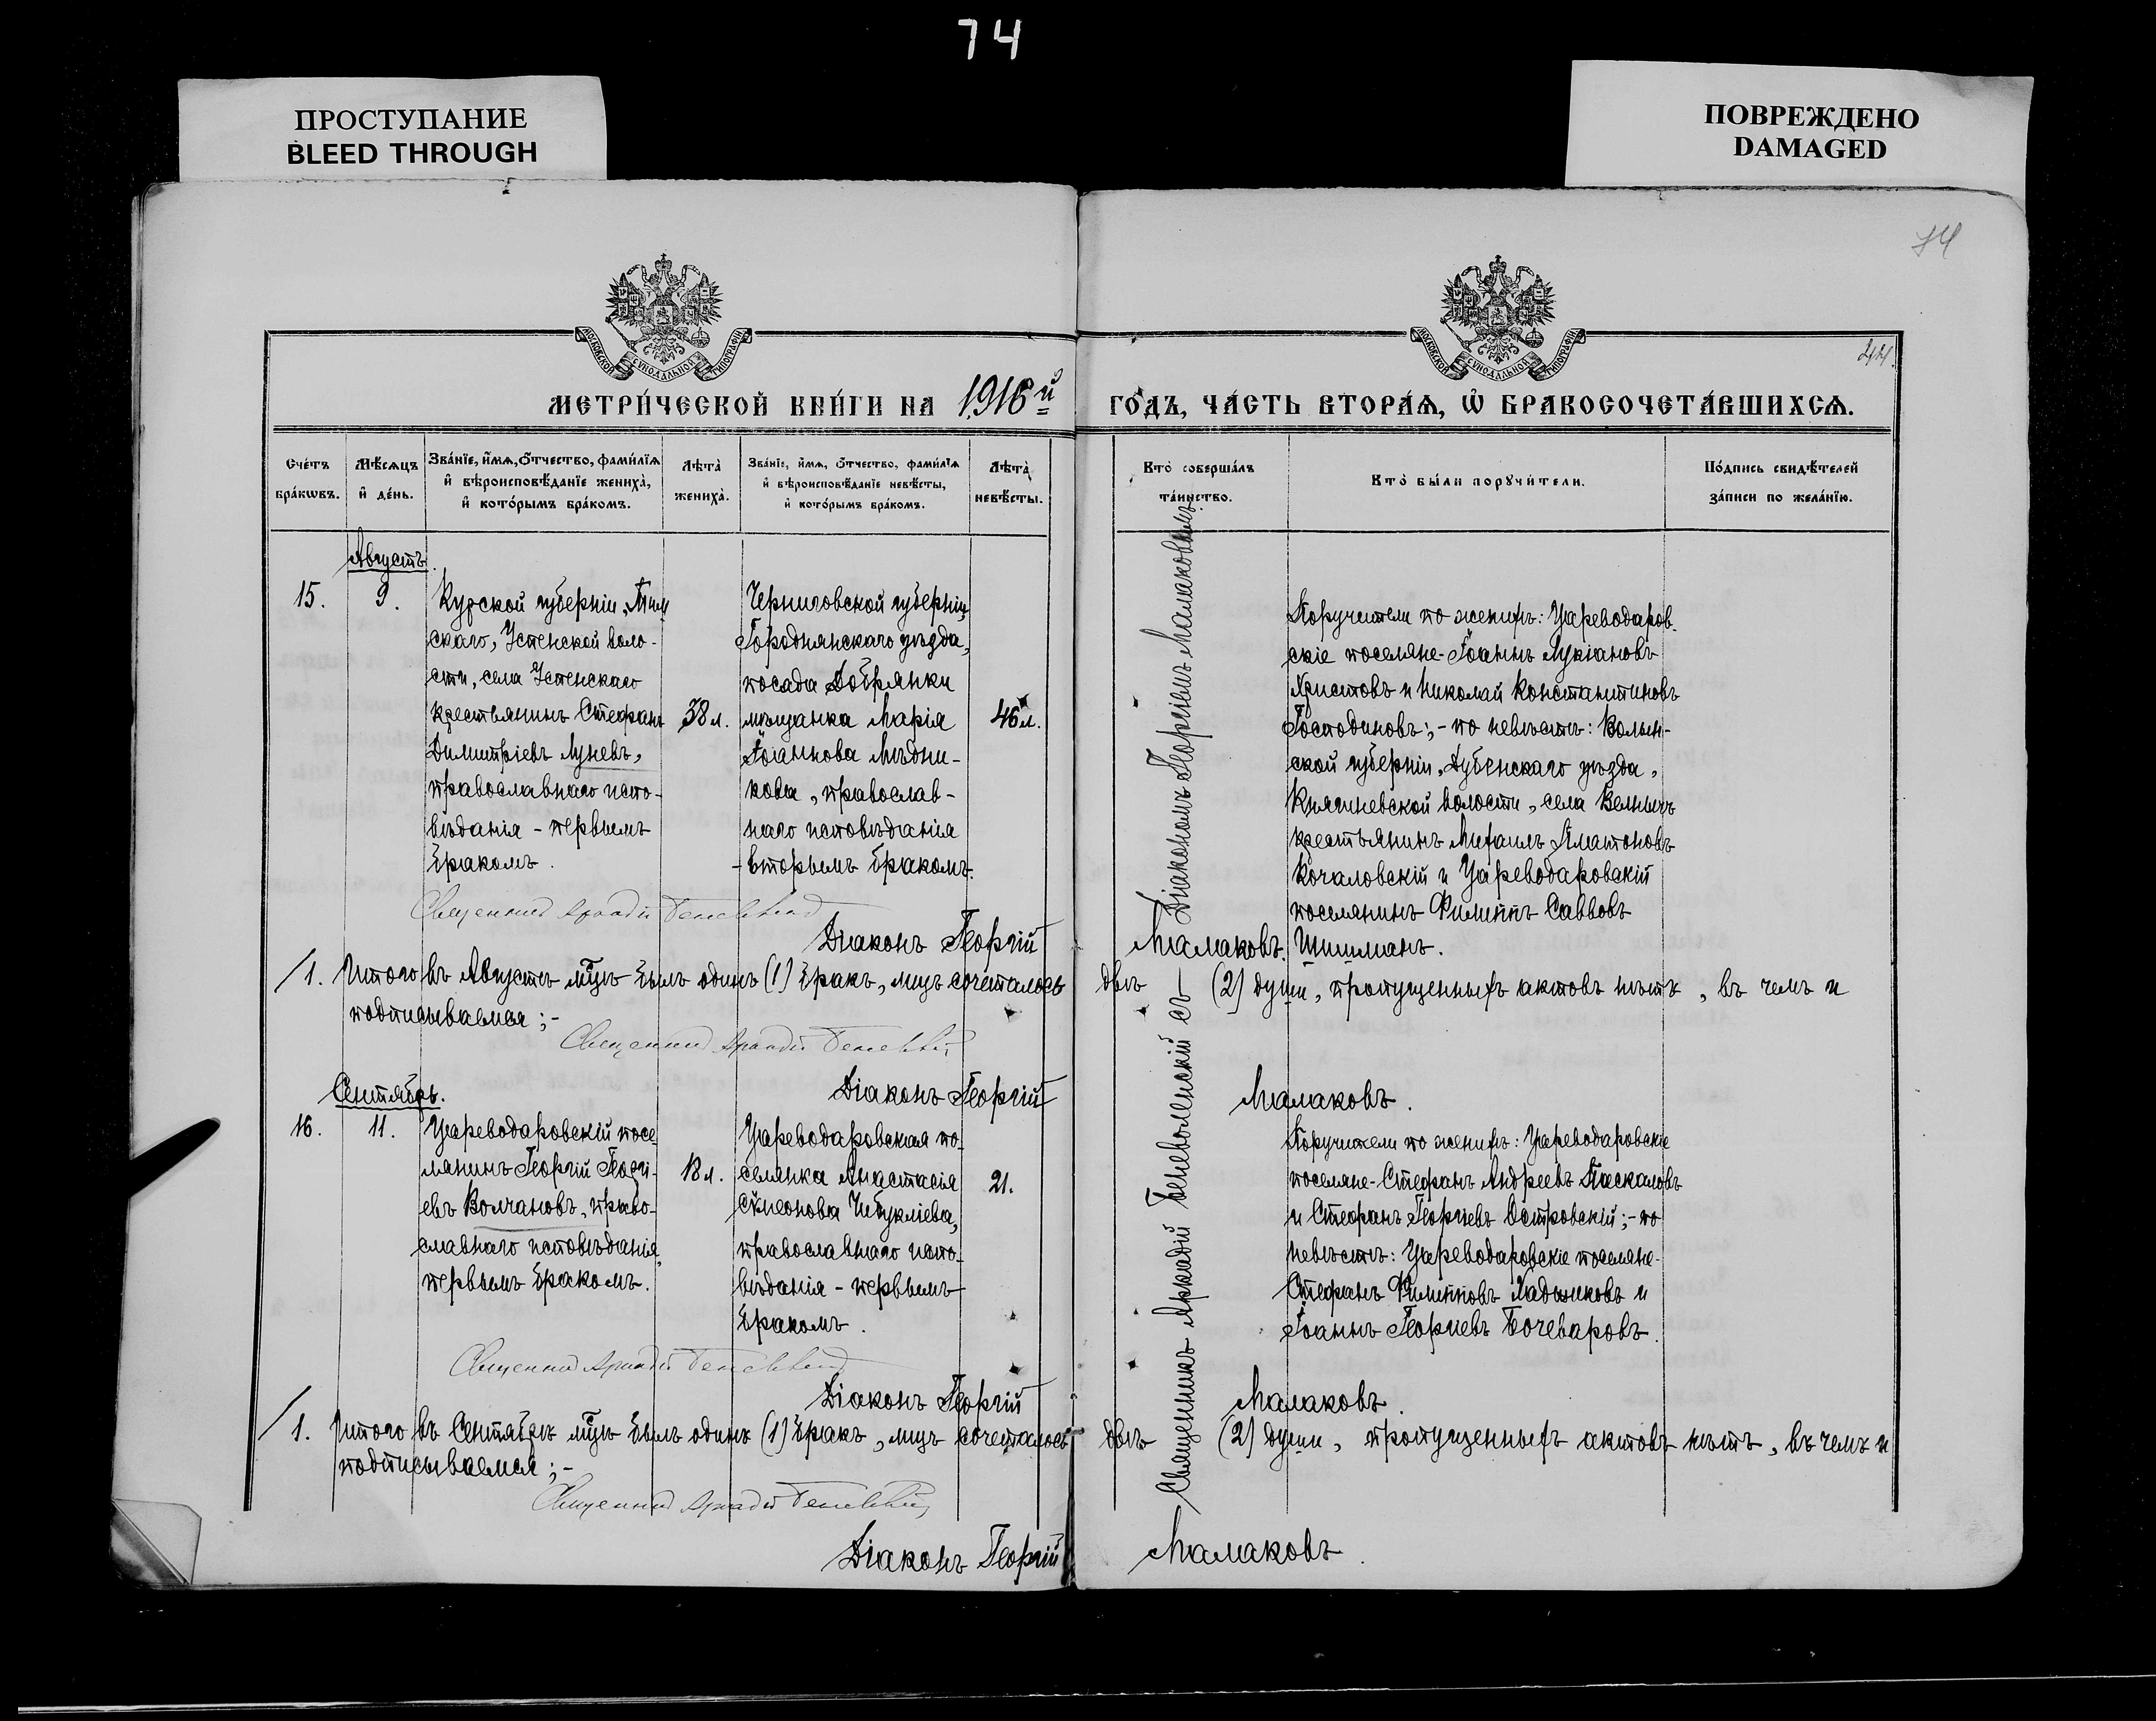 74
ПРОСТУПАНИЕ
BLEED THROUGH
ПОВРЕЖДЕНО
DAMAGED
74
44.
МОСКОВСКОЙ СѴНОДАЛЬНОЙ ТИПОГРАФІИ
МОСКОВСКОЙ СѴНОДАЛЬНОЙ ТИПОГРАФІИ
МЕТРИ́ЧЕСКОЙ КНИ́ГИ НА 1916й ГО́ДЪ, ЧА́СТЬ ВТОРА́Я, Ѡ҆ БРАКОСОЧЕТА́ВШИХСЯ.
Сче́тъ
бра́кѡвъ.
Мѣ́сяцъ
и҆ де́нь.
Зва́нїе, и҆́мѧ, ѻ҆́тчество, фами́лїѧ
и҆ вѣроисповѣ́данїе жениха̀,
и҆ кото́рымъ бра́комъ.
Лѣ́та̀
жениха̀.
Зва́нїе, и҆́мѧ, ѻ҆́тчество, фами́лїѧ
и҆ вѣроисповѣ́данїе невѣ́сты,
и҆ кото́рымъ бра́комъ.
Лѣ́та̀
невѣ́сты.
Кто̀ соверша́лъ
та́инство.
Кто̀ бы́ли порꙋчи́тели.
По́дпись свидѣ́телей
за́писи по жела́нїю.
Августъ.
15.
9.
Курской губерніи, Тим
скаго, Успенской воло-
сти, села Успенскаго
крестьянинъ Стефанъ
Димитріевъ Луневъ,
православнаго испо-
вѣданія - первымъ
бракомъ.
38 л.
Черниговской губерніи,
Городнянскаго уѣзда,
посада Добрянки
мѣщанка Марія
Іоаннова Мѣдни-
кова, православ-
наго исповѣданія
- вторымъ бракомъ.
46 л.
Священникъ Аркадій Беневоленскій съ Діакономъ Георгіемъ Малаковымъ.
Поручители по женихѣ: Цареводаров-
скіе поселяне - Іоаннъ Лукіановъ
Христовъ и Николай Константиновъ
Господиновъ; - по невѣстѣ: Волын-
ской губерніи, Дубенскаго уѣзда,
Княгиневской волости, села
крестьянинъ Михаилъ Платоновъ
Кочаловскій и Цареводаровскій
поселянинъ Филиппъ Савовъ
Шишманъ.
Священникъ Аркадій Беневоленскій
Діаконъ Георгій Малаковъ.
1. Итого въ Августѣ мѣцѣ былъ одинъ (1) бракъ, лицъ сочеталось двѣ (2) души, пропущенныхъ актовъ нѣтъ, въ чемъ и
подписываемся; -
Священникъ Аркадій Беневоленскій
Діаконъ Георгій Малаковъ.
Сентябрь.
16.
11.
Цареводаровскій посе-
лянинъ Георгій Георгі-
евъ Волчановъ, право-
славнаго исповѣданія,
первымъ бракомъ.
18 л.
Цареводаровская по-
селянка Анастасія
Сѵмеонова Чибукліева,
православнаго испо-
вѣданія - первымъ
бракомъ.
21.
Поручители по женихѣ: Цареводаровскіе
поселяне - Стефанъ Андреевъ Паскаловъ
и Стефанъ Георгіевъ Островскій; - по
невѣстѣ: Цареводаровскіе поселяне -
Стефанъ Филипповъ Ладыжковъ и
Іоаннъ Георгіевъ Бочеваровъ.
Священникъ Аркадій Беневоленскій
Діаконъ Георгій Малаковъ.
1. Итого въ Сентябрѣ мѣцѣ былъ одинъ (1) бракъ, лицъ сочеталось двѣ (2) души, пропущенныхъ актовъ нѣтъ, въ чемъ и
подписываемся; -
Священникъ Аркадій Беневоленскій
Діаконъ Георгій Малаковъ.